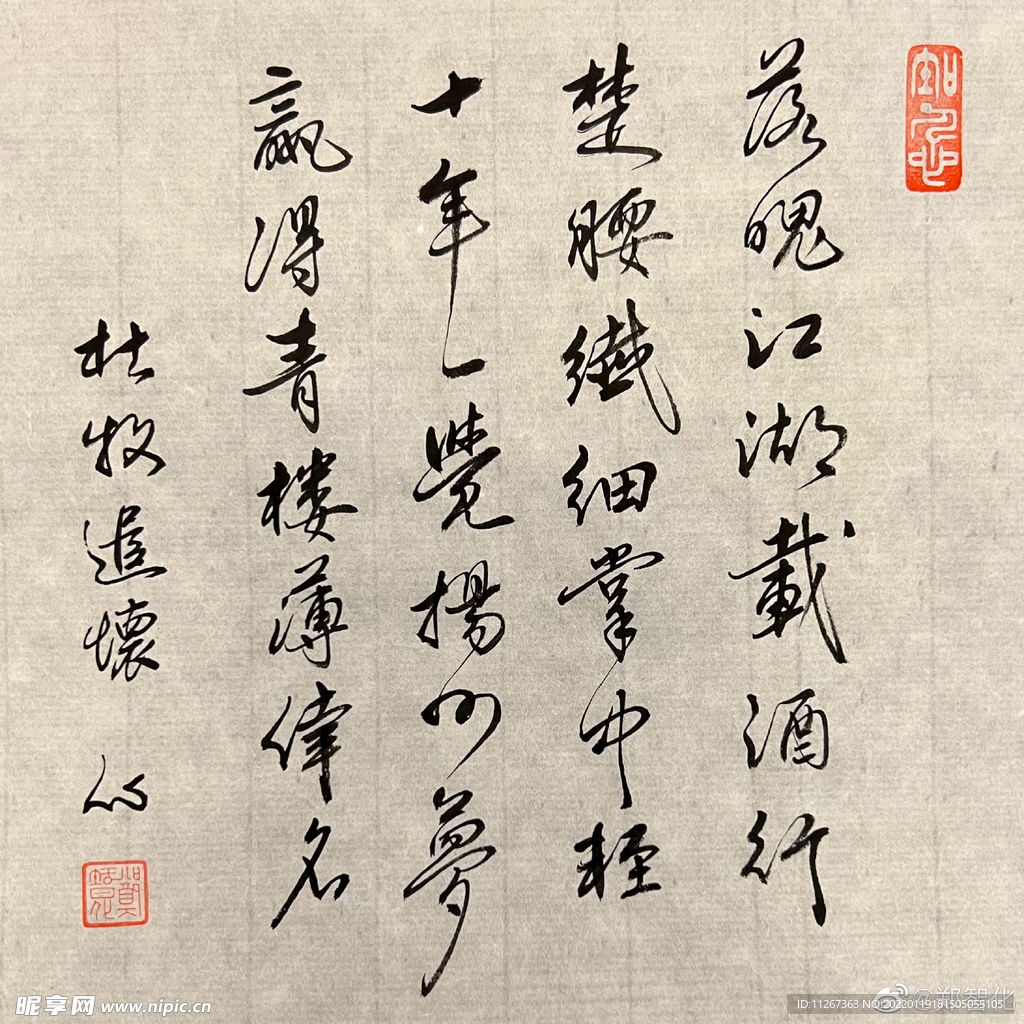 落魄江湖載酒行
楚腰纖細掌中輕
十年一覺揚州夢
贏得青樓薄倖名
杜牧遣懷
昵享网 www.nipic.cn
@郑智化
ID:11267363 NO:20220119181505055105